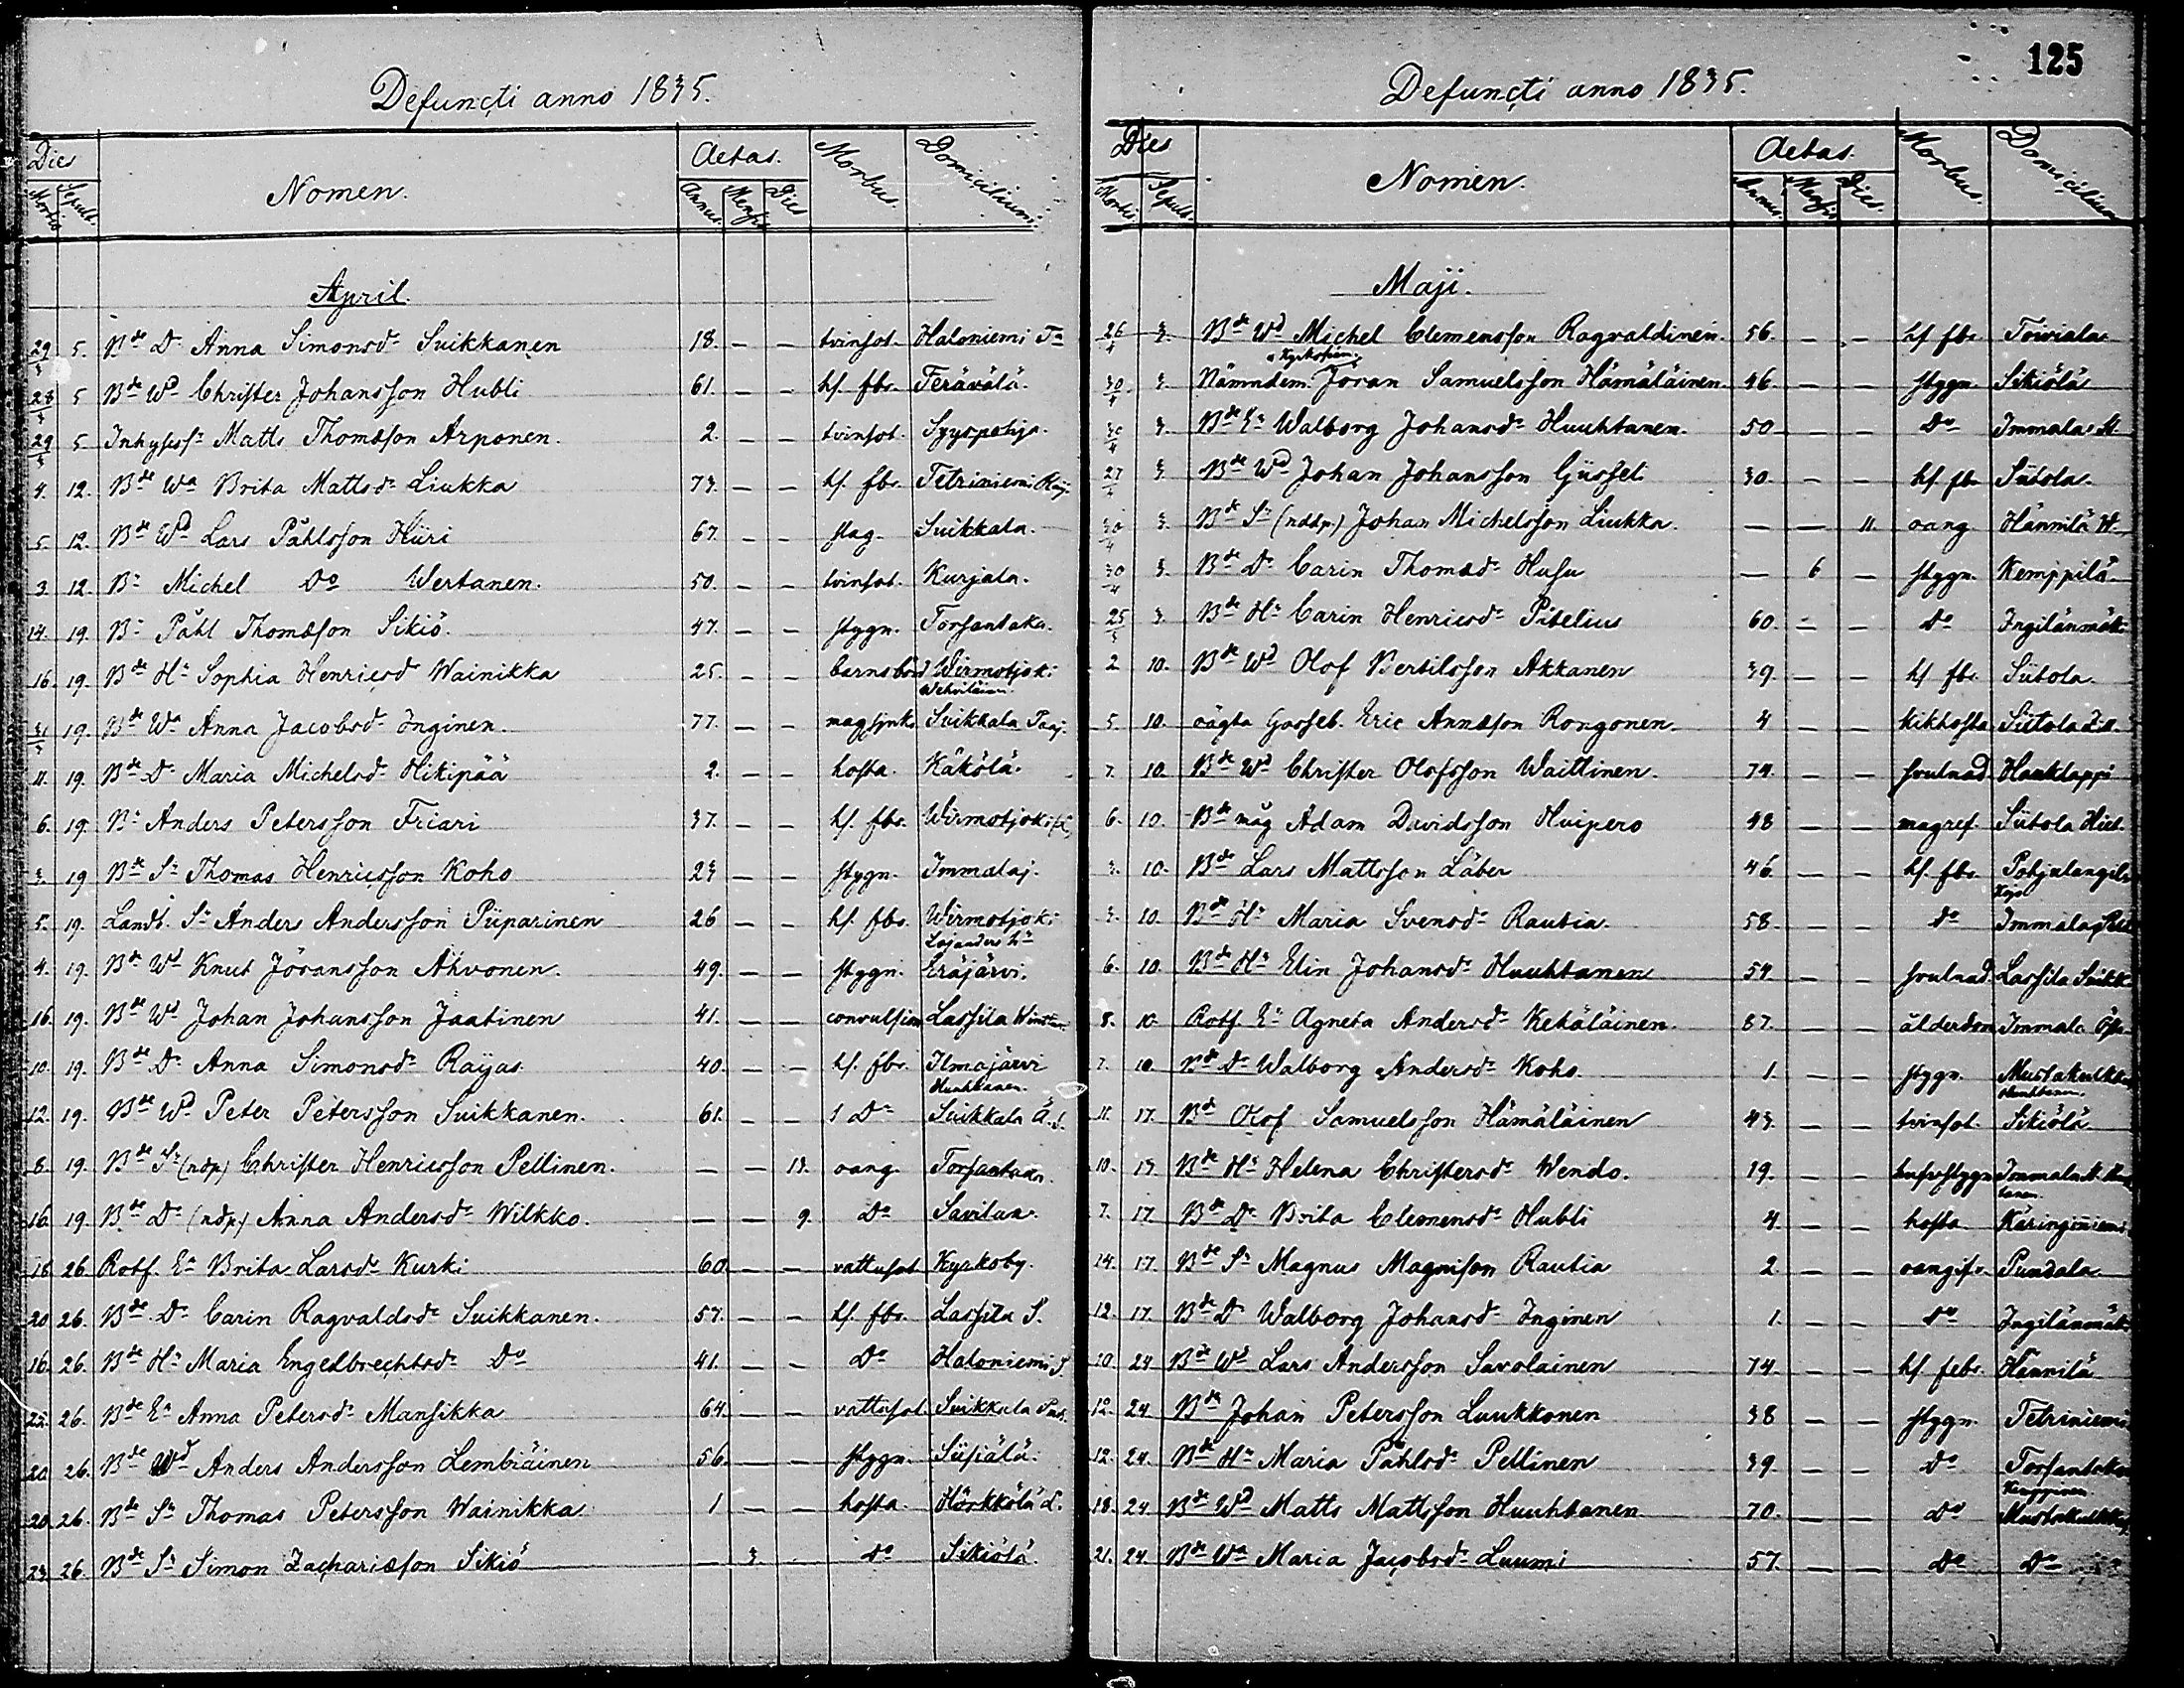 Defuncti anno 1835.
Dies Nomen. Aetas. Morbus. Domicilium.
Mortis Sepult. Annus. Mensis Dies
April.
29/3 5. Bde Dr Anna Simonsdr Suikkanen 18. — — tvinsot. Haloniemi
28/3 5 Bde Wd Christer Johansson Hubli 61. — — hf. fbr. Terävälä.
29/3 5 Inhyses Sn Matts Thomæson Arponen. 2. — — tvinsot. Syyspohja.
4. 12. Bde Wa Brita Mattsdr Liukka 73. — — hf. fbr. Tetriniemi
5. 12. Bde Wd Lars Påhlsson Hiiri 67. — — slag. Suikkala.
3. 12. Bn Michel Do Wertanen. 50. — — tvinsot. Kurjala.
14. 19. Bn Påhl Thomæson Sikiö. 47. — — stygn. Torsantaka.
16. 19. Bde Hu Sophia Henricsdr Wainikka 25. — — barnsbörd Wirmotjoki
31/3 19. Bde Wa Anna Jacobsdr Inginen. 77. — — magsjuk. Suikkala
11. 19. Bde Dr Maria Michelsdr Hikipää 2. — — hosta. Käkölä.
6. 19. Bn Anders Petersson Friari 37. — — hf. fbr. Wirmotjoki
3. 19 Bde Sn Thomas Henricsson Koho 23 — — stygn. Immalaj.
5. 19. Landb. Sn Anders Andersson Piiparinen 26 — — hf. fbr. Wirmotjoki
4. 19. Bde Wd Knut Jöransson Ahvonen. 49. — — stygn. Eräjärvi.
16. 19. Bde Wd Johan Johansson Jaatinen 41. — — convulsion Lassila
10. 19. Bde Dr Anna Simonsdr Raijas 40. — — hf. fbr. Ilmajärvi
Huuhtanen.
12. 19. Bde Wd Peter Petersson Suikkanen. 61. — — Do Suikkala
8. 19. Bde Sn (ndp) Christer Henricsson Pellinen. — — 13. oang. Torsantaka.
16. 19. Bde Dr (ndp) Anna Andersdr Wilkko. — — 9. Do Savilax.
18 26. Rotf. Ea Brita Larsdr Kurki 60. — — vattusot Kyrkoby.
20 26. Bde Dr Carin Ragvaldsdr Suikkanen. 57. — — hf. fbr. Lassila S.
16. 26. Bde Hu Maria Engelbrechtsdr Do 41. — — Do Haloniemi S.
22. 26. Bde Ea Anna Petersdr Mansikka 64. — — vattusot. Suikkala
20 26. Bde Wd Anders Andersson Lembiäinen 56. — — stygn. Siisiälä.
20 26. Bde Sn Thomas Petersson Wainikka 1 — — hosta. Härkkölä L.
23 26. Bde Sn Simon Zachariæson Sikiö — 3. Do Sikiölä.
125
Defuncti anno 1835.
Dies Nomen. Aetas. Morbus. Domicilium
Mortis. Sepult. Annus. Mensis Dies.
Maji.
26/4 3. Bde Wd Michel Clemensson Ragvaldinen. 56. — — hf. fbr. Toiviala
30/4 3. Nämndem. Jöran Samuelsson Hämäläinen. 46. — — stygn. Sikiölä
30/4 3. Bde Ea Walborg Johansdr Huuhtanen. 50 — — Do Immala
27/4 3. Bde Wd Johan Johansson Gusset 30. — — hf. fbr. Siitola.
30/4 3. Bde Sn (nddp.) Johan Michelsson Liukka. — — 11. oang. Hännilä
30/4 3. Bde Dr Carin Thomædr Husu — 6 — stygn. Kemppilä.
25/3 3. Bde Hu Carin Henricsdr Pitelius 60. — — Do Ingilänmäki
2 10. Bde Wd Olof Bertilsson Akkanen 39. — — hf. fbr. Siitola.
5. 10. oägta Gosseb. Eric Annæson Rongonen. 4 — — kikhosta Siitola
7. 10. Bde Wd Christer Olofsson Waittinen. 74. — — svulnad Hauklappi
6. 10. Bde måg Adam Davidsson Huipero 48 — — magref. Siitola
3. 10. Bde Lars Mattsson Läber 46. — — hf. fbr. Pohjalangila
3. 10. Bde Hu Maria Svensdr Rautia. 58. — — Do Immalaj
6. 10. Bde Hu Elin Johansdr Huuhtanen 54. — — svulnad. Lassila Suikk.
8. 10. Rotf. Ea Agneta Andersdr Kekäläinen. 87. — — ålderdom Immala
7. 10. Bde Dr Walborg Andersdr Koho. 1. — — stygn. Mustakulkku
Huuhtanen.
11. 17. Bde Olof Samuelsson Hämäläinen 43. — — tvinsot. Sikiölä
10. 17. Bde Hu Helena Christersdr Wendo. 19. — — Immala
7. 17. Bde Dr Brita Clemensdr Hubli 4. — — hosta Käringiniemi
14. 17. Bde Sn Magnus Magnison Rautia 2. — — oangifv. Pundala
12. 17. Bde Dr Walborg Johansdr Inginen 1. — — Do Ingilänmäki
10 24 Bde Wd Lars Andersson Savolainen 74. — — hf. febr. Hännilä
12. 24. Bde Johan Petersson Luukkonen 38 — — stygn. Tetriniemi
12. 24. Bde Hu Maria Påhlsdr Pellinen 39. — — Do Torsantaka
18. 24. Bde Wd Matts Mattsson Huuhtanen. 70. — — Do Mustakulkku
21. 24. Bde Wa Maria Jacobsdr Luumi 57. — — Do Do